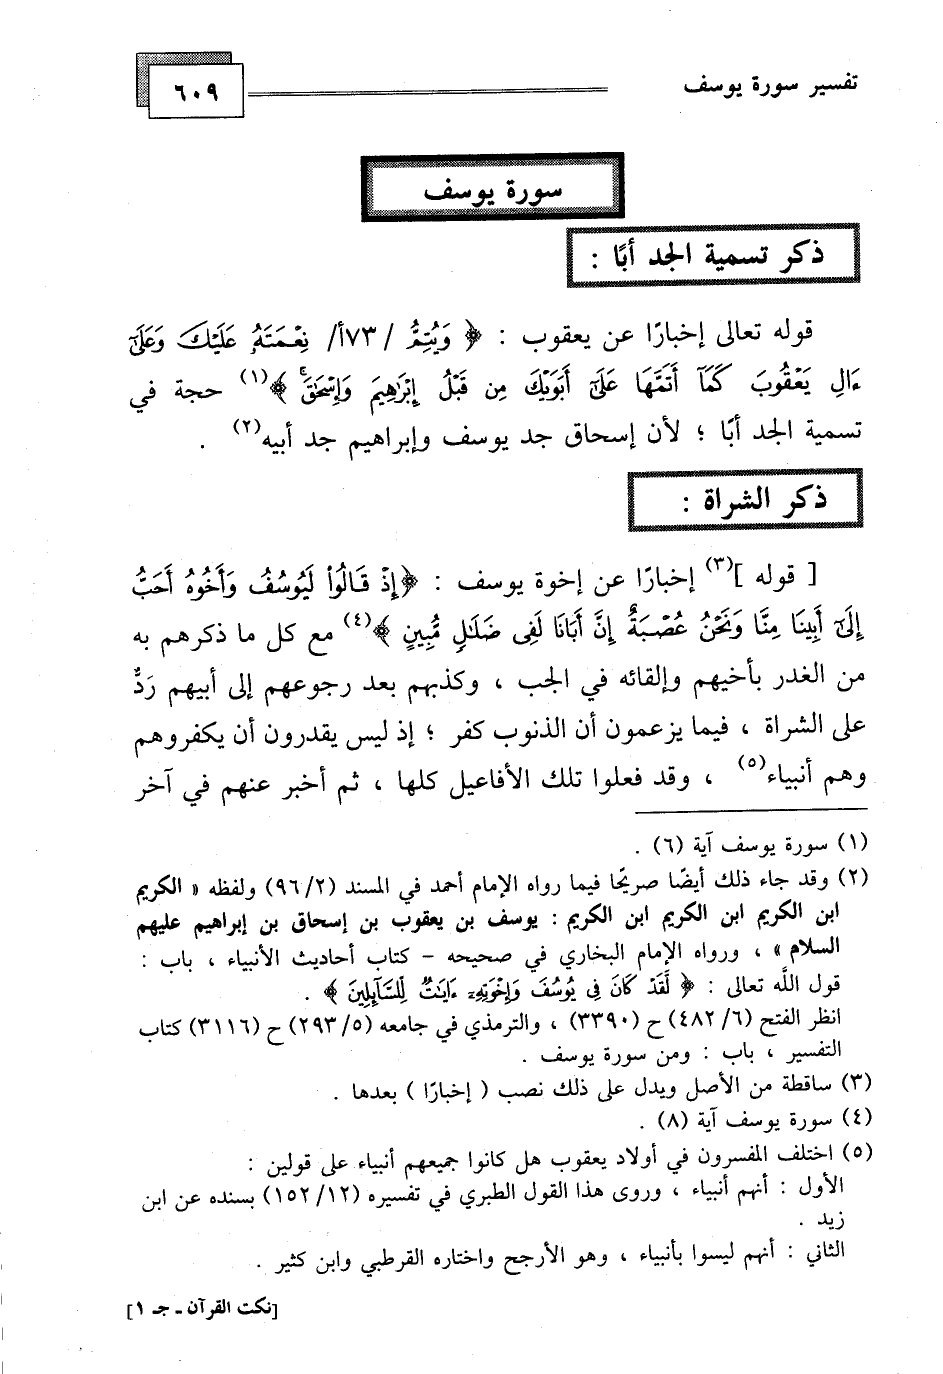 تفسير سورة يوسف
٦٠٩
سورة يوسف
ذكر تسمية الجد أبًا :
قوله تعالى إخبارًا عن يعقوب : ﴿ وَيُتِمُّ / ٧٣أ/ نِعْمَتَهُ عَلَيْكَ وَعَلَىٰٓ
ءَالِ يَعْقُوبَ كَمَآ أَتَمَّهَا عَلَىٰٓ أَبَوَيْكَ مِن قَبْلُ إِبْرَٰهِيمَ وَإِسْحَٰقَ ۚ ﴾(١) حجة في
تسمية الجد أبًا ؛ لأن إسحاق جد يوسف وإبراهيم جد أبيه(٢) .
ذكر الشراة :
[ قوله ](٣) إخبارًا عن إخوة يوسف : ﴿إِذْ قَالُوا۟ لَيُوسُفُ وَأَخُوهُ أَحَبُّ
إِلَىٰٓ أَبِينَا مِنَّا وَنَحْنُ عُصْبَةٌ إِنَّ أَبَانَا لَفِى ضَلَٰلٍ مُّبِينٍ ﴾(٤) مع كل ما ذكرهم به
من الغدر بأخيهم وإلقائه في الجب ، وكذبهم بعد رجوعهم إلى أبيهم رَدٌّ
على الشراة ، فيما يزعمون أن الذنوب كفر ؛ إذ ليس يقدرون أن يكفروهم
وهم أنبياء(٥) ، وقد فعلوا تلك الأفاعيل كلها ، ثم أخبر عنهم في آخر
(١) سورة يوسف آية (٦) .
(٢) وقد جاء ذلك أيضًا صريحًا فيما رواه الإمام أحمد في المسند (٩٦/٢) ولفظه « الكريم
ابن الكريم ابن الكريم ابن الكريم : يوسف بن يعقوب بن إسحاق بن إبراهيم عليهم
السلام » ، ورواه الإمام البخاري في صحيحه – كتاب أحاديث الأنبياء ، باب :
قول اللَّه تعالى : ﴿ لَّقَدْ كَانَ فِى يُوسُفَ وَإِخْوَتِهِۦٓ ءَايَٰتٌ لِّلسَّآئِلِينَ ﴾ .
انظر الفتح (٤٨٢/٦) ح (٣٣٩٠) ، والترمذي في جامعه (٢٩٣/٥) ح (٣١١٦) كتاب
التفسير ، باب : ومن سورة يوسف .
(٣) ساقطة من الأصل ويدل على ذلك نصب ( إخبارًا ) بعدها .
(٤) سورة يوسف آية (٨) .
(٥) اختلف المفسرون في أولاد يعقوب هل كانوا جميعهم أنبياء على قولين :
الأول : أنهم أنبياء ، وروى هذا القول الطبري في تفسيره (١٥٢/١٢) بسنده عن ابن
زيد .
الثاني : أنهم ليسوا بأنبياء ، وهو الأرجح واختاره القرطبي وابن كثير .
[نكت القرآن ـ جـ ١]